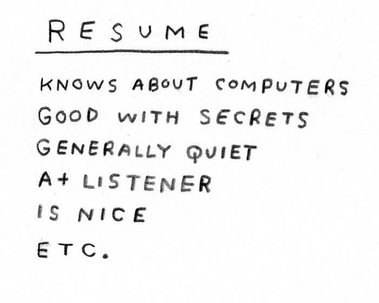 RESUME
KNOWS ABOUT COMPUTERS
GOOD WITH SECRETS
GENERALLY QUIET
A+ LISTENER
IS NICE
ETC.